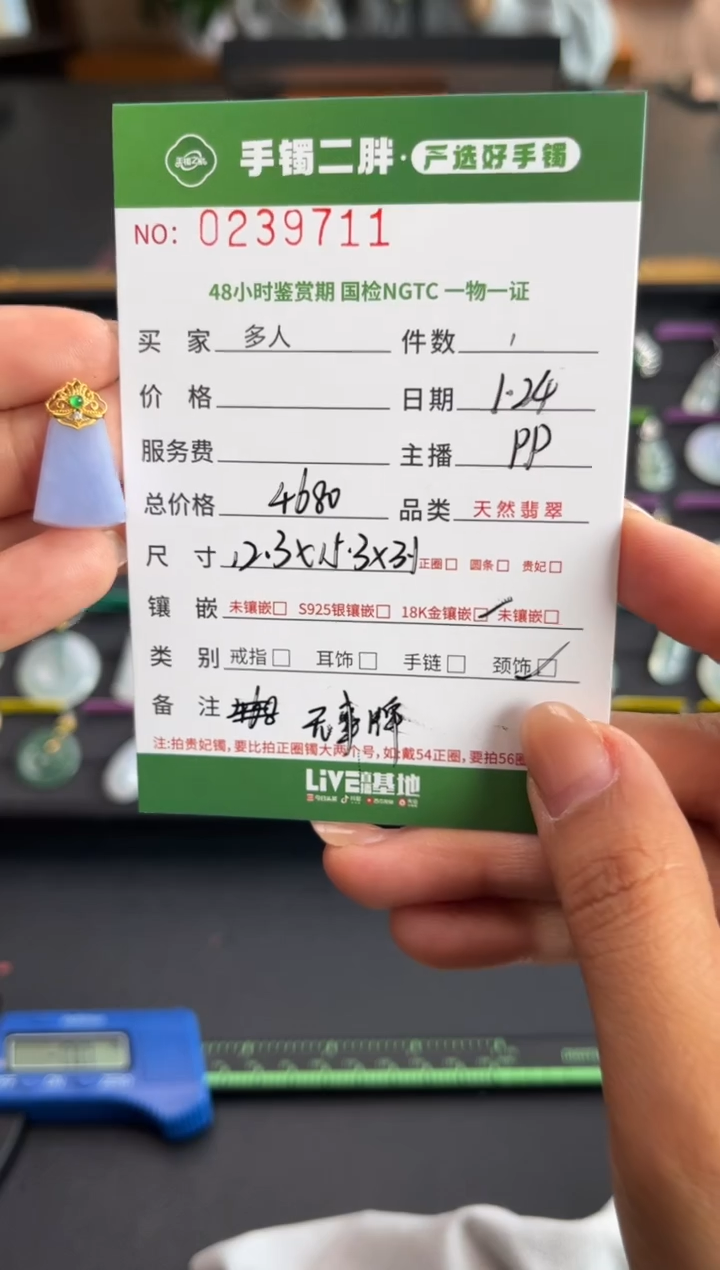 手镯二胖·严选好手镯
NO: 0239711
48小时鉴赏期 国检NGTC 一物一证
买 家 多人 件数 1
价 格 日期 1.24
服务费 主播 PP
总价格 4680 品类 天然翡翠
尺 寸 12.3x15.3x3.1 正圈□ 圆条□ 贵妃□
镶 嵌 未镶嵌□ S925银镶嵌□ 18K金镶嵌☑ 未镶嵌□
类 别 戒指□ 耳饰□ 手链□ 颈饰☑
备 注 无事牌
注:拍贵妃镯,要比拍正圈镯大两个号,如:戴54正圈,要拍56圈
LiVE直播基地